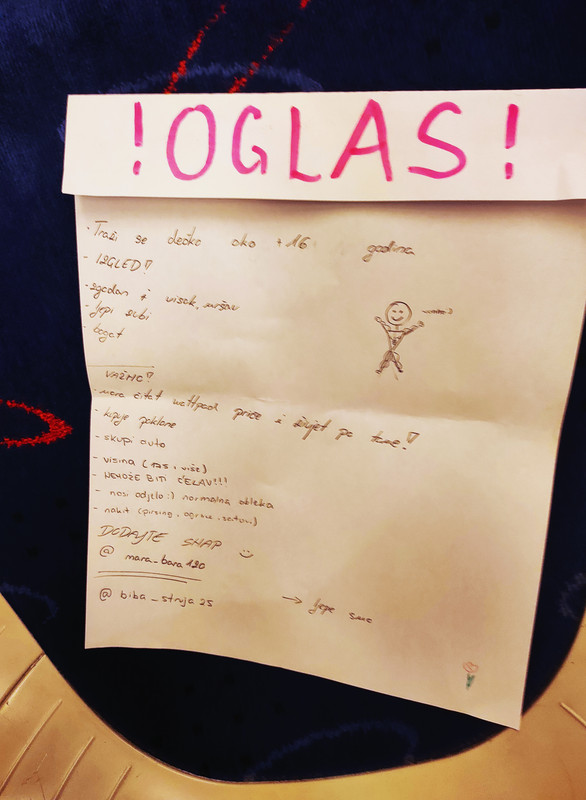 !OGLAS!
- Traži se dečko oko +16 godina
- IZGLED!
- zgodan i visok, mršav
- ljepi zubi
- bogat
VAŽNO!
- mora čitat wattpad priče i živjet po tome!
- kupuje poklone
- skupi auto
- visina (175 i više)
- NEMOŽE BITI ĆELAV!!!
- nosi odjelo :) normalna obleka
- nakit (pirsing,
DODAJTE SNAP :)
@ mara_bara190
@ biba_struja25 → ljepe smo